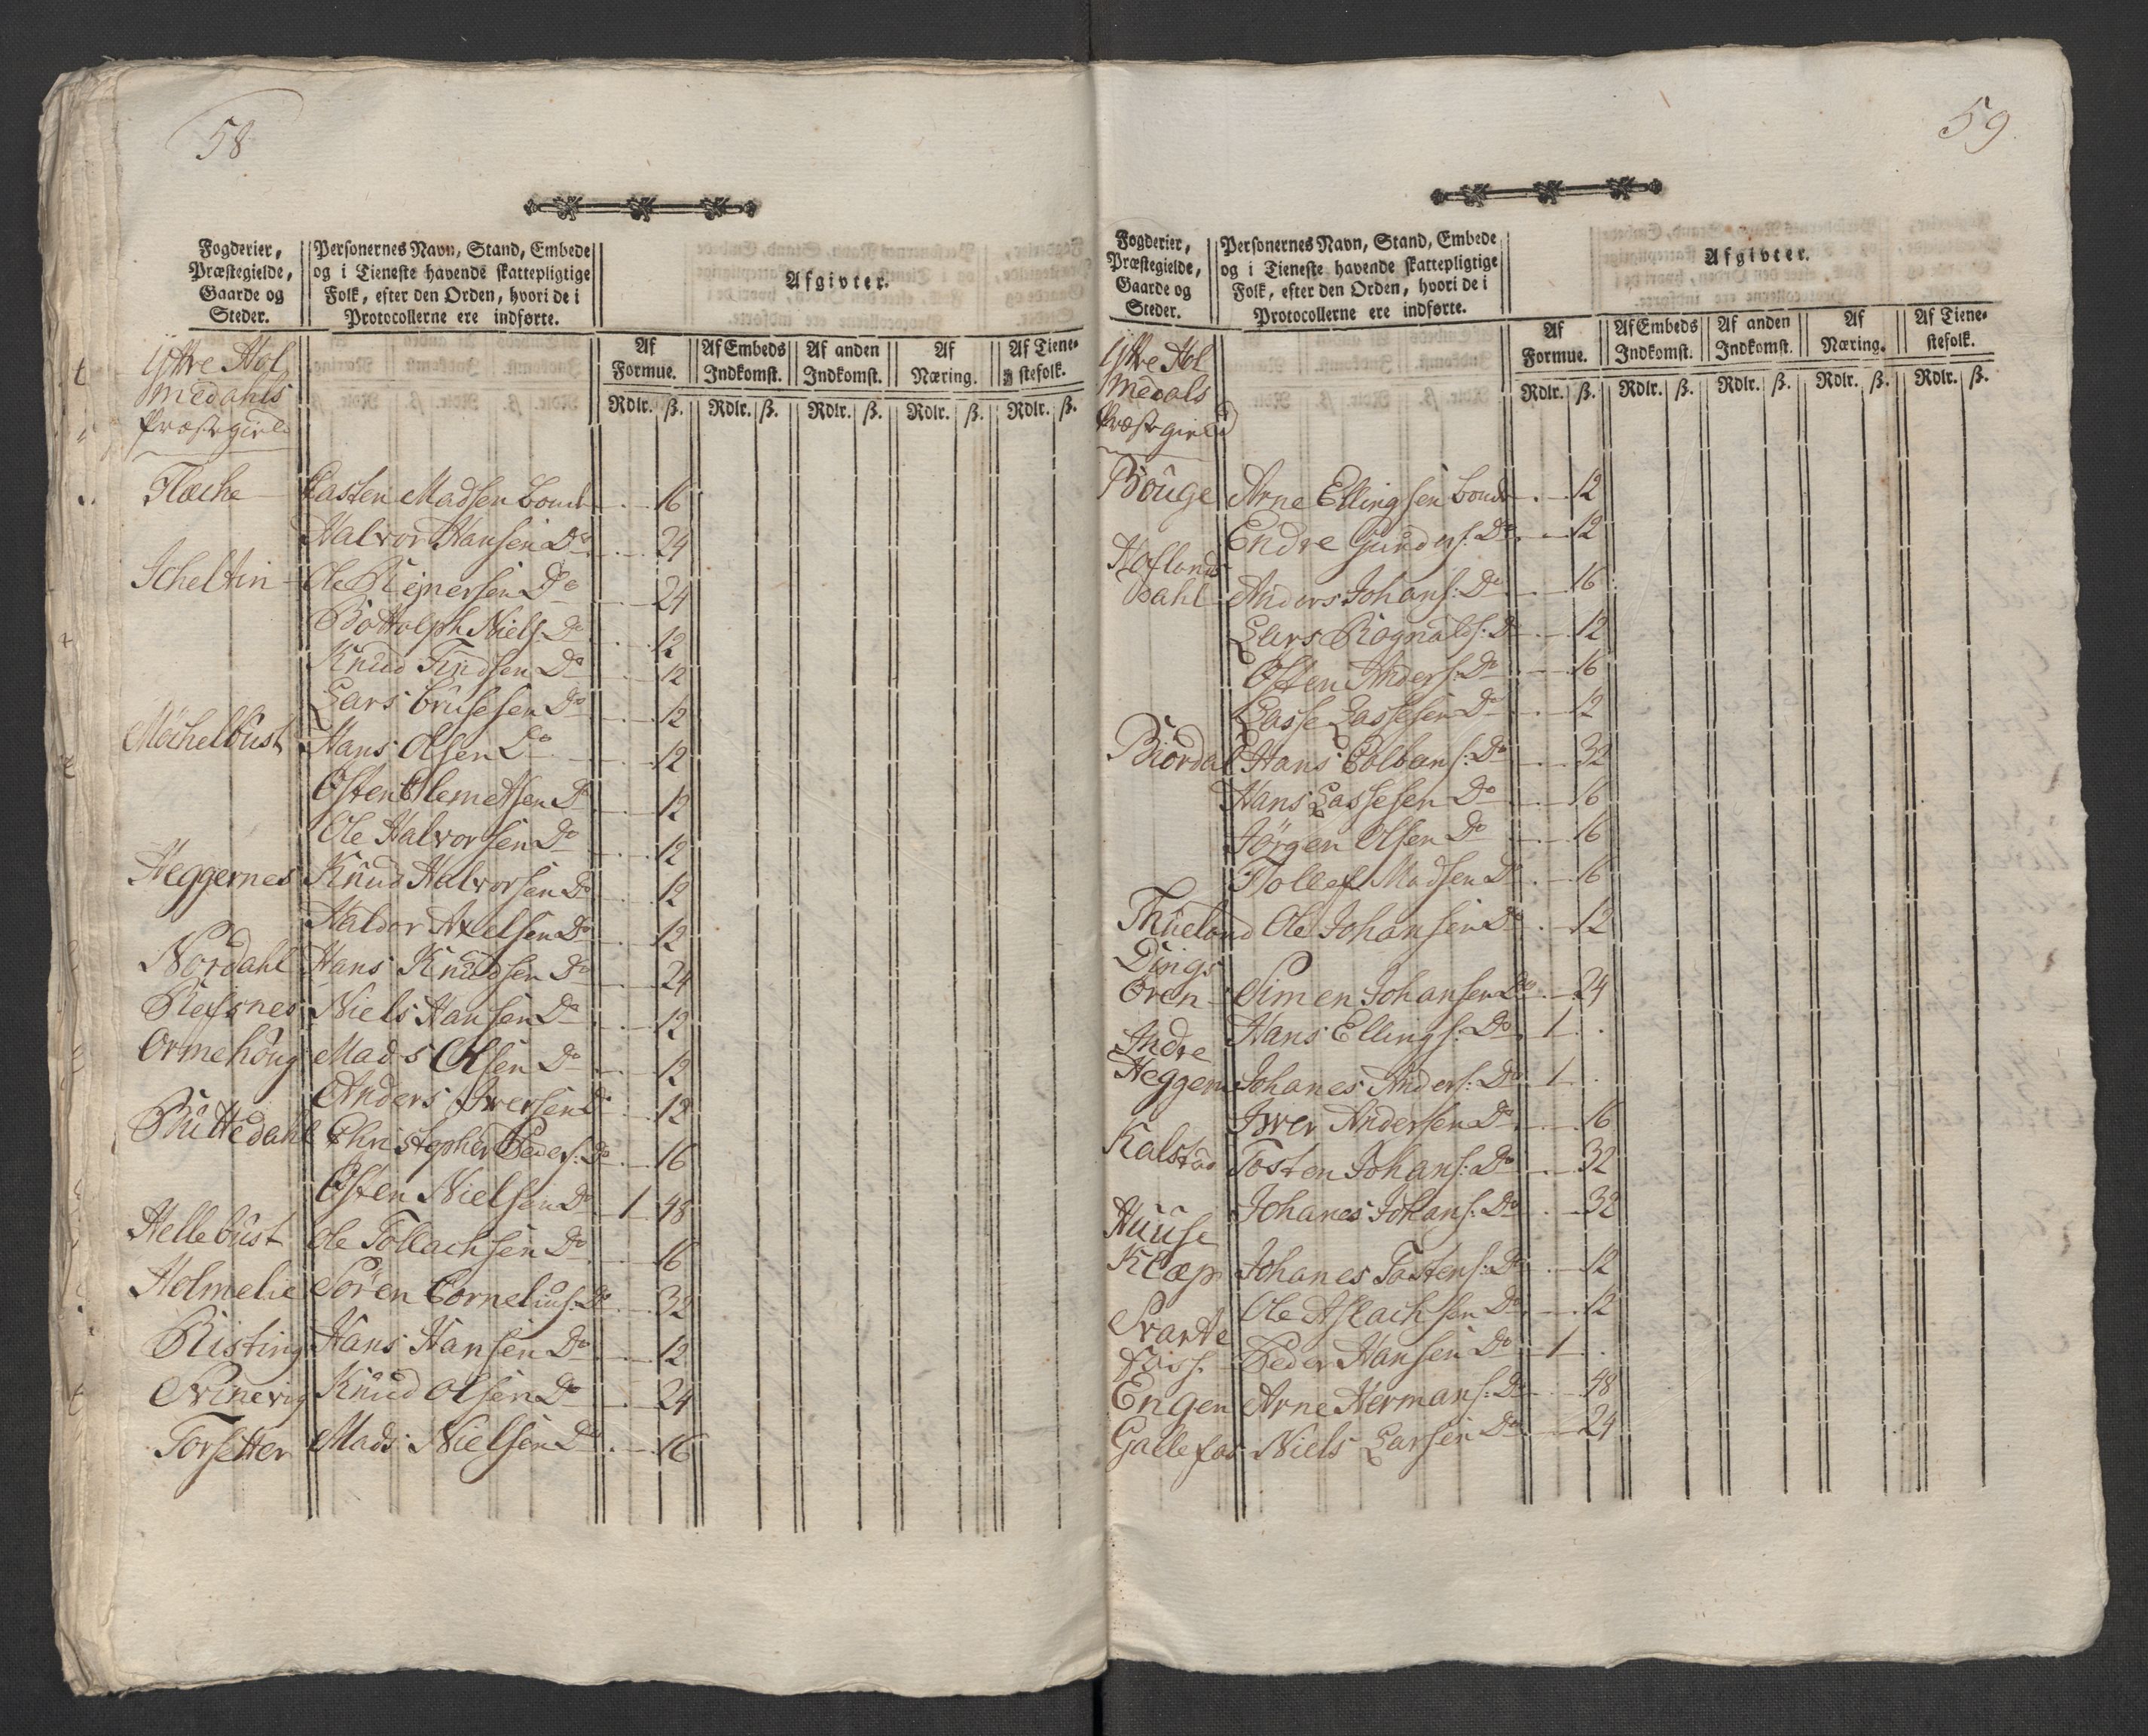 58
Fogderier,
Præstegielde,
Gaarde og
Steder.
Personernes Navn, Stand, Embede
og i Tieneste havende skattepligtige
Folk, efter den Orden, hvori de i
Protocollerne ere indførte.
Afgivter.
Af Formue. Af Embeds Indkomst. Af anden Indkomst. Af Næring. Af Tienestefolk.
Rdlr. ß. Rdlr. ß. Rdlr. ß. Rdlr. ß. Rdlr. ß.
Ÿttre Hol
medahls
Præstegield
Flæche Casten Madsen Bonde 16
Halvor Hansen Do 24
Scheltin Ole Rejnersen Do 24
Bottolph Niels: Do 12
Knud Findsen Do 12
Lars Crusesen Do 12
Möchelbust Hans Olsen Do 12
Østen Clemetsen Do 12
Ole Halvorsen Do 12
Heggernes Knud Halvorsen Do 12
Haldor Axelsen Do 12
Nordahl Hans Knudsen Do 24
Refsnes Niels Hansen Do 12
Ormehoug Mads Olsen Do 12
Anders Iversen Do 12
Buttedahl Christopher Peders: Do 16
Østen Nielsen Do 1 48
Hellebust Ole Tollachsen Do 16
Holmelie Sören Cornelius: Do 32
Risting Hans Hansen Do 12
Svinevig Knud Olsen Do 24
Torsetter Mads Nielsen Do 16
59
Fogderier,
Præstegielde,
Gaarde og
Steder.
Personernes Navn, Stand, Embede
og i Tieneste havende skattepligtige
Folk, efter den Orden, hvori de i
Protocollerne ere indførte.
Afgivter.
Af Formue. Af Embeds Indkomst. Af anden Indkomst. Af Næring. Af Tienestefolk.
Rdlr. ß. Rdlr. ß. Rdlr. ß. Rdlr. ß. Rdlr. ß.
Ÿttre Hol
medals
Præstegield
Bouge Arne Ellingsen Bonde 12
Endre Gunders: Do 12
Hoflands
Dahl Anders Johans: Do 16
Lars Rognalds: Do 12
Østen Anders: Do 16
Lasse Lassesen Do 12
Biordal Hans Colbens: Do 32
Hans Lassesen Do 16
Jørgen Olsen Do 16
Tollef Madsen Do 16
Thueland Ole Johansen Do 12
Dings
Øren Simen Johansen Do 24
Hans Ellings: Do 1
Indre
Heggem Johanes Anders: Do 1
Iver Andersen Do 16
Kalstad Tosten Johans: Do 32
Johanes Johans: Do 32
Huuse
Klæp Johanes Tostens: Do 12
Ole Aslachsen Do 12
Svarte
foss Peder Hansen Do 1
Engen Arne Hermans: Do 48
Gallefos Niels Larsen Do 24